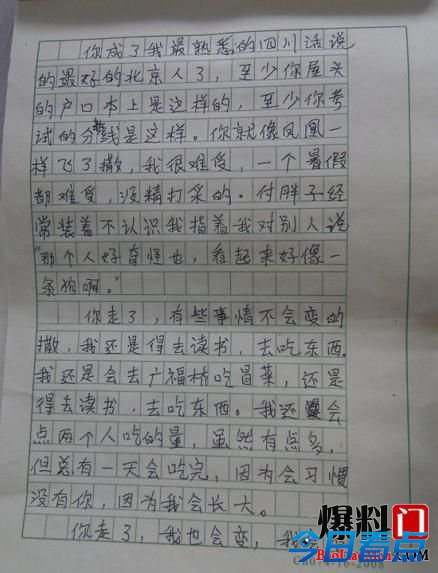 你成了我最熟悉的四川话说
的最好的北京人了，至少你屋头
的户口本上是这样的，至少你考
试的分数线是这样。你就像凤凰一
样飞了撒，我很难受，一个暑假
都难受，没精打采的。付胖子经
常装着不认识我指着我对别人说
“那个人好奇怪也，看起来好像一
条狗啊。”
你走了，有些事情不会变的
撒，我还是得去读书，去吃东西。
我还是会去广福桥吃冒菜，还是
得去读书，去吃东西。我还会
点两个人吃的量，虽然有点多，
但总有一天会吃完，因为会习惯
没有你，因为我会长大。
你走了，我也会变，我
爆料门
今日看点